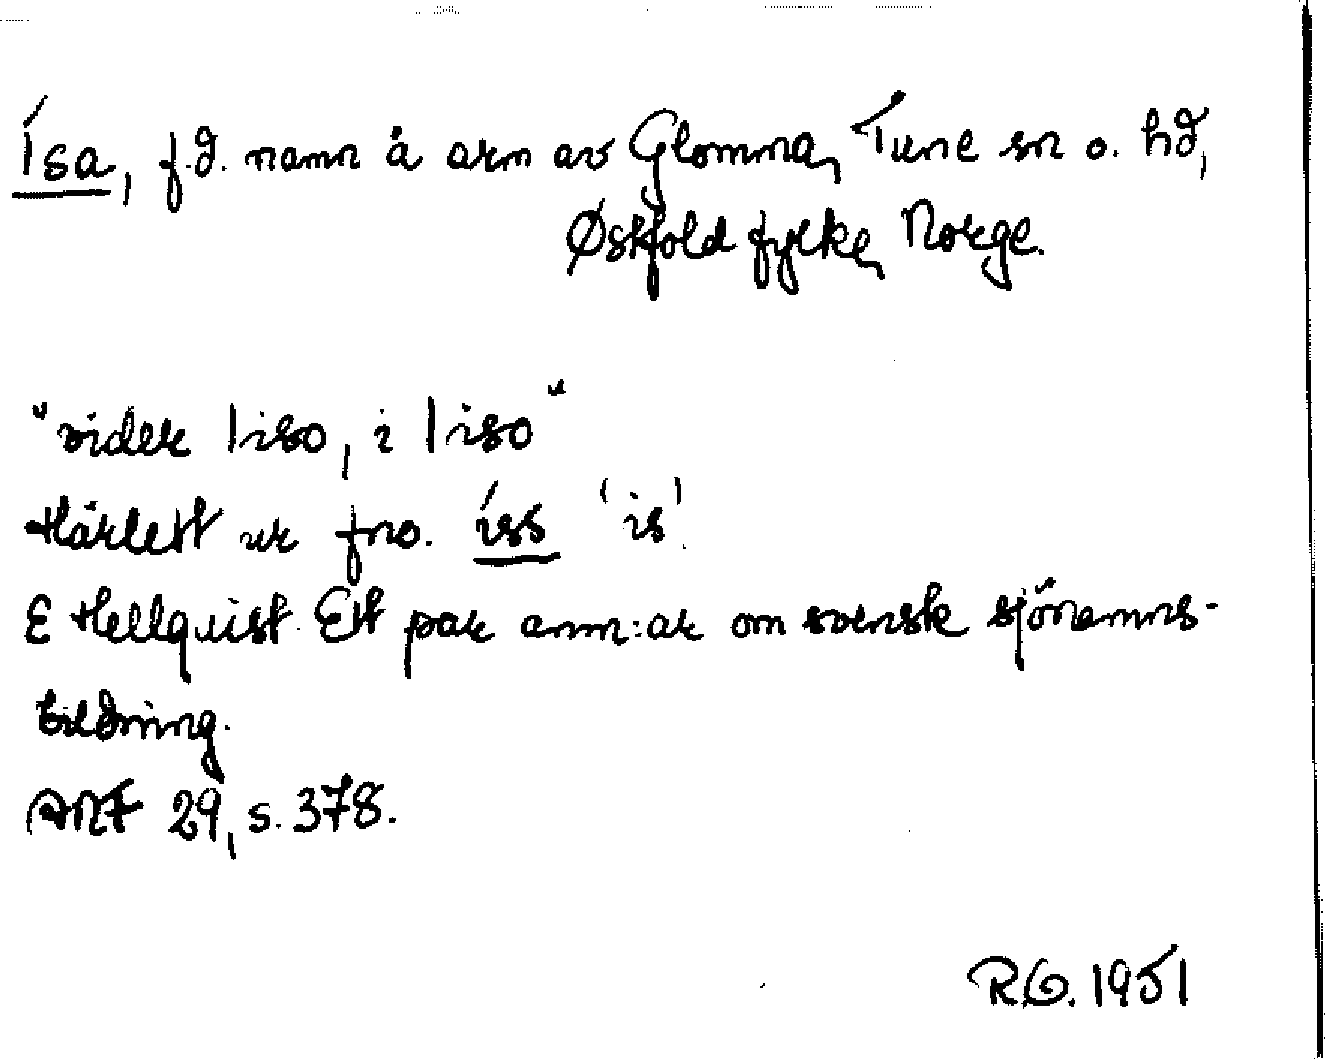 Ísa, f.d. namn å arm av Glomma, Tune sn o. hd,
Østfold fylke, Norge.
"vider Iiso, i Iiso"
Härlett ur fno. íss 'is'.
E Hellquist Ett par anm:ar om svensk sjönamns-
bildning.
ANF 29, s. 378.
R.G. 1951